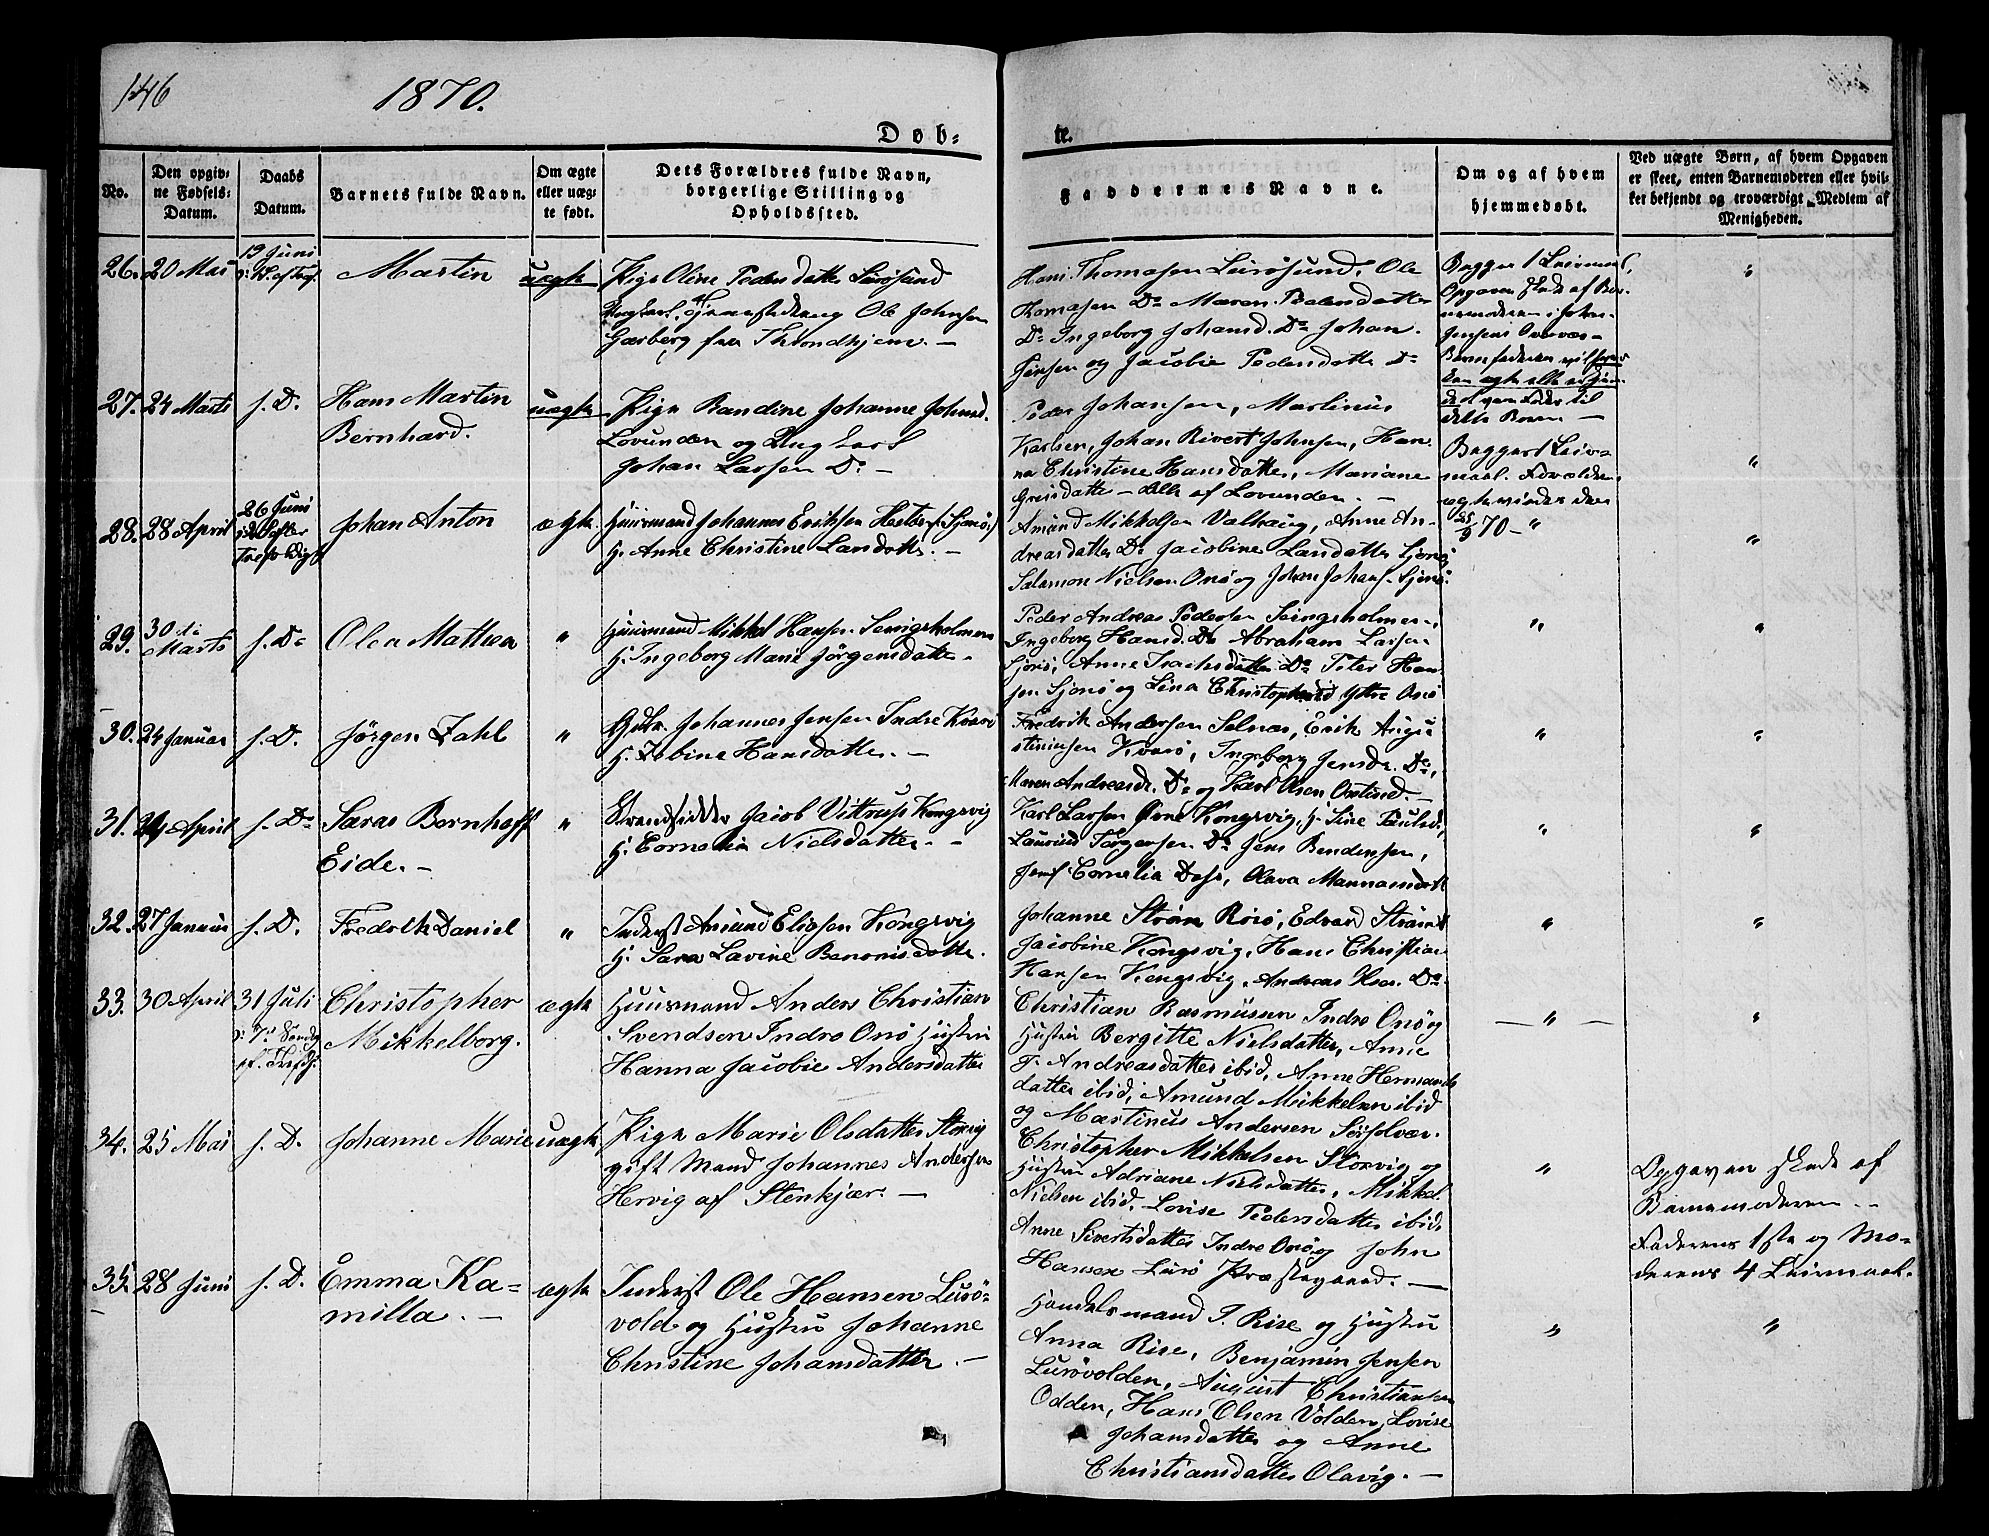 146
1870.
Døb-
te.
No.
Den opgiv-
ne Fødsels-
Datum.
Daabs
Datum.
Barnets fulde Navn.
Om ægte
eller uæg-
te født.
Dets Forældres fulde Navn,
borgerlige Stilling og
Opholdssted.
Faddernes Navne.
Om og af hvem
hjemmedøbt.
Ved uægte Børn, af hvem Opgaven
er skeet, enten Barnemoderen eller hvil-
ket bekjendt og troværdigt Medlem af
Menigheden.
26. 20 Mai
19 Juni
Martin
uægte
Pige Oline Pedersdatter Lurøsund
Ungkarl, Ole Johnsen
Garberg fra Throndhjem. —
Hans Thomasen Lurøsund, Ole
Thomasen Do Maren Pedersdatter
Do Ingeborg Johansd. Do Johan
Jensen og Jacobie Pedersdatter Do
Begges 1 Leiermaal,
Opgaven skede af Bar-
nemoderen i Johan
Jensens Overvær-
Barnefaderen vil
detto Barn —
27. 24 Marts
s. D.
Hans Martin
Bernhard.
uægte
Pige Bandine Johanne Johnsd.
Lovunden og Ungkarl
Johan Larsen Do —
Peder Johansen, Martinus
Karlsen, Johan Rivert Johnsen, Han-
na Christine Hansdatter, Mariane
Greisdatter — Alle af Lovunden. —
Begges 1 Leier-
maal. Forældrene
ægteviedes den
25/9 70 —
28. 28 April
26 Juni
Trefoldigh
Johan Anton
ægte.
Huusmand Johannes Eriksen
H. Anne Christine Larsdatter. —
Amund Mikkelsen Valhaug, Anne An-
dreasdatter Do Jacobine Larsdatter Sjonø
Salamon Nielsen Onø og Johan Johans. Sjonø.
29. 30 Marts
s. Do
Olea Mathea
"
Huusmand Mikkel Hansen Seingsholmen
H. Ingeborg Marie Jörgensdatter —
Peder Andreas Pedersen Seingsholmen,
Ingeborg Hansd. Do Abraham Larsen
Sjonø, Anne Isachsdatter Do Peter Han-
sen Sjonø og Lina Christophersd Yttre Onø
30. 24 Januar
s. D.
Jörgen Zahl
"
Johannes Jensen Indre Kvarø
H. Zebine Hansdatter. —
Fredrik Andersen Selnæs, Erik Augu
stinusen Kvarø, Ingeborg Jensdr. Do,
Maren Andreasd. Do og Karl Olsen —
31. April
s. Do
Saras Bernhoff
Eide. —
"
Strandsidder Jacob Vittrup Kongsvig
H. Cornelia Nielsdatter. —
Karl Larsen Kongsvig, H. Sine Paulsd,
Laurind Torgersen Do Jens Bendixsen,
Jomf. Cornelia Dass, Olava
32. 27 Januar
s. D.
Fredrik Daniel
"
Inderst Amund Eliasen Kongsvig
H. Sara Lavine Benonisdatter.
Johanne Strøm Rösø, Edvard Strøm
Jacobine Kongsvig, Hans Christian
Hansen Kongsvig, Andreas Do.
33. 30 April
31 Juli
Christopher
Mikkelborg.
ægte
Huusmand Anders Christian
Svendsen Indre Onø Hustru
Hanna Jacobie Andersdatter
Christian Rasmussen Indre Onø og
Hustru Bergitte Nielsdatter, Anne
Andreasdatter ibid, Anne Hermands
datter ibid, Amund Mikkelsen ibid
og Martinus Andersen Sørsolvær.
— " —
34. 25 Mai
s. D.
Johanne Marie
uægte
Pige Marie Olsdatter Storvig
gift Mand Johannes Andersen
Hervig af Stenkjær. —
Christopher Mikkelsen Storvig og
Hustru Adriane Nielsdatter, Mikkel
Nielsen ibid, Lovise Pedersdatter ibid,
Anne Sivertsdatter Indre Onø og John
Hansen Lurø Præstegaard. —
"
Opgaven skede af
Barnemoderen. —
Faderens 1ste og Mo-
derens 4 Leiermaal.
35. 28 Juni
s. D.
Emma Ka-
milla. —
ægte
Inderst Ole Hansen Lurö-
vold og Hustru Johanne
Christine Johansdatter. —
Handelsmand P. Rise og Hustru
Anna Rise, Benjamin Jensen
Lurövolden, August Christiansen
Odden, Hans Olsen Volden, Lovise
Johansdatter og Anne
Christiansdatter Olavig. —
"
"